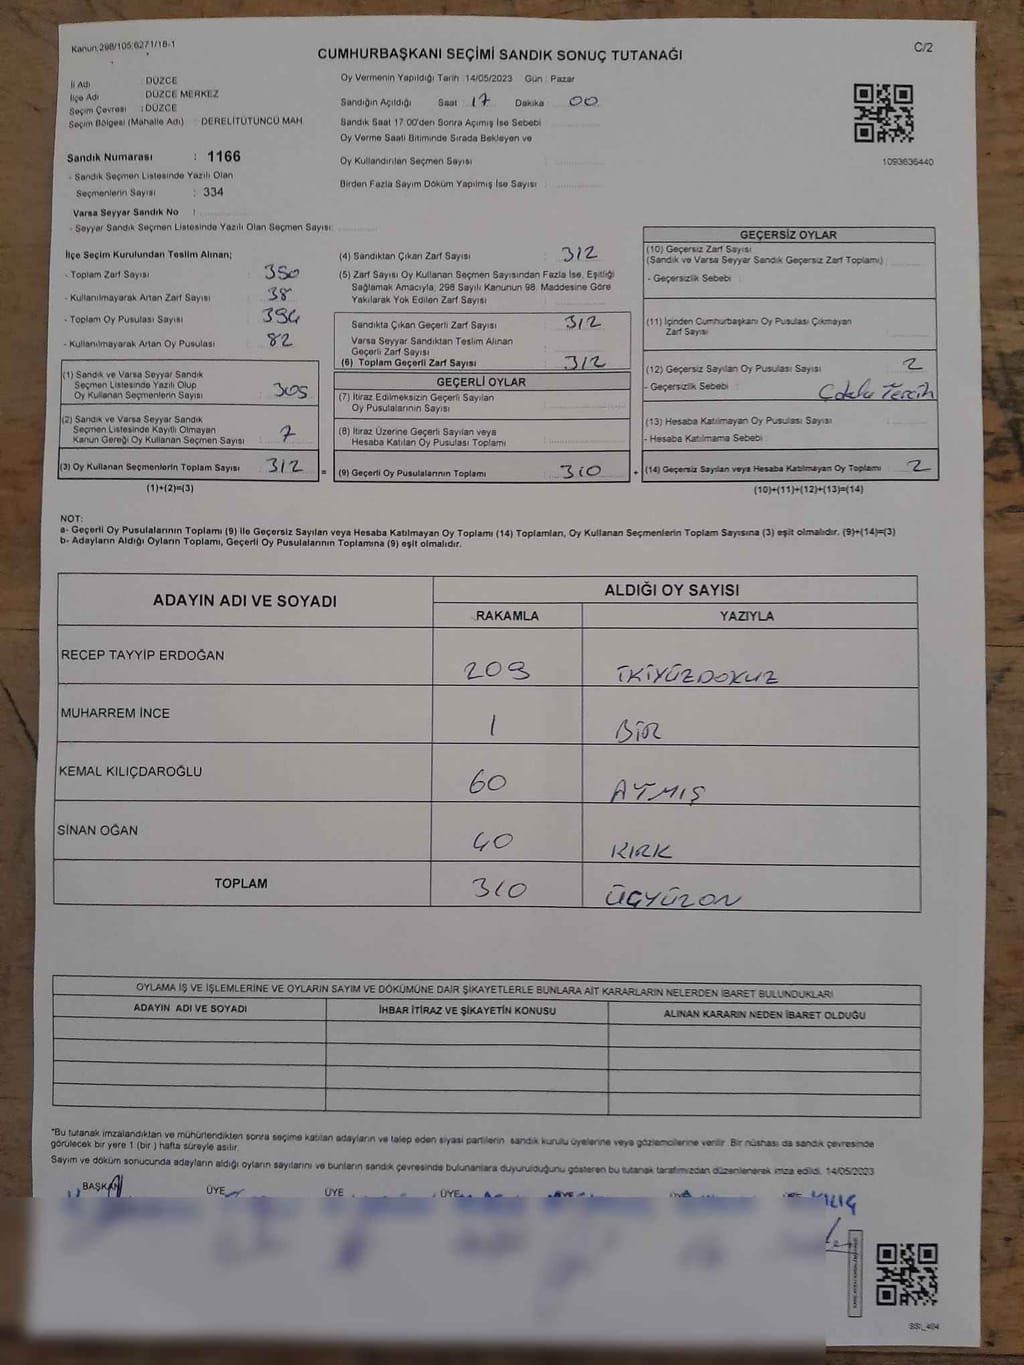 Kanun:298/105,6271/18-1
C/2
CUMHURBAŞKANI SEÇİMİ SANDIK SONUÇ TUTANAĞI
İl Adı : DÜZCE
İlçe Adı : DÜZCE MERKEZ
Seçim Çevresi : DÜZCE
Seçim Bölgesi (Mahalle Adı) : DERELİTÜTÜNCÜ MAH.
Sandık Numarası : 1166
- Sandık Seçmen Listesinde Yazılı Olan
Seçmenlerin Sayısı : 334
Varsa Seyyar Sandık No :
- Seyyar Sandık Seçmen Listesinde Yazılı Olan Seçmen Sayısı:
Oy Vermenin Yapıldığı Tarih :14/05/2023 Gün : Pazar
Sandığın Açıldığı Saat : 17 Dakika : 00
Sandık Saat 17:00'den Sonra Açımış İse Sebebi :
Oy Verme Saati Bitiminde Sırada Bekleyen ve
Oy Kullandırılan Seçmen Sayısı :
Birden Fazla Sayım Döküm Yapılmış İse Sayısı :
1093636440
İlçe Seçim Kurulundan Teslim Alınan;
- Toplam Zarf Sayısı : 350
- Kullanılmayarak Artan Zarf Sayısı : 38
- Toplam Oy Pusulası Sayısı : 394
- Kullanılmayarak Artan Oy Pusulası : 82
(1) Sandık ve Varsa Seyyar Sandık
Seçmen Listesinde Yazılı Olup
Oy Kullanan Seçmenlerin Sayısı : 305
(2) Sandık ve Varsa Seyyar Sandık
Seçmen Listesinde Kayıtlı Olmayan
Kanun Gereği Oy Kullanan Seçmen Sayısı : 7
(3) Oy Kullanan Seçmenlerin Toplam Sayısı : 312
(1)+(2)=(3)
(4) Sandıktan Çıkan Zarf Sayısı : 312
(5) Zarf Sayısı Oy Kullanan Seçmen Sayısından Fazla İse, Eşitliği
Sağlamak Amacıyla, 298 Sayılı Kanunun 98. Maddesine Göre
Yakılarak Yok Edilen Zarf Sayısı :
Sandıkta Çıkan Geçerli Zarf Sayısı : 312
Varsa Seyyar Sandıktan Teslim Alınan
Geçerli Zarf Sayısı :
(6) Toplam Geçerli Zarf Sayısı : 312
GEÇERLİ OYLAR
(7) İtiraz Edilmeksizin Geçerli Sayılan
Oy Pusulalarının Sayısı :
(8) İtiraz Üzerine Geçerli Sayılan ve
Hesaba Katılan Oy Pusulası Toplamı :
= (9) Geçerli Oy Pusulalarının Toplamı : 310
GEÇERSİZ OYLAR
(10) Geçersiz Zarf Sayısı
(Sandık ve Varsa Seyyar Sandık Geçersiz Zarf Toplamı) :
- Geçersizlik Sebebi :
(11) İçinden Cumhurbaşkanı Oy Pusulası Çıkmayan
Zarf Sayısı :
(12) Geçersiz Sayılan Oy Pusulası Sayısı : 2
- Geçersizlik Sebebi : Çoklu Tercih
(13) Hesaba Katılmayan Oy Pusulası Sayısı :
- Hesaba Katılmama Sebebi :
+ (14) Geçersiz Sayılan veya Hesaba Katılmayan Oy Toplamı : 2
(10)+(11)+(12)+(13)=(14)
NOT:
a- Geçerli Oy Pusulalarının Toplamı (9) ile Geçersiz Sayılan veya Hesaba Katılmayan Oy Toplamı (14) Toplamları, Oy Kullanan Seçmenlerin Toplam Sayısına (3) eşit olmalıdır. (9)+(14)=(3)
b- Adayların Aldığı Oyların Toplamı, Geçerli Oy Pusulalarının Toplamına (9) eşit olmalıdır.
ADAYIN ADI VE SOYADI ALDIĞI OY SAYISI
RAKAMLA YAZIYLA
RECEP TAYYİP ERDOĞAN 209 İKİYÜZDOKUZ
MUHARREM İNCE 1 BİR
KEMAL KILIÇDAROĞLU 60 ATMIŞ
SİNAN OĞAN 40 KIRK
TOPLAM 310 ÜÇYÜZON
OYLAMA İŞ VE İŞLEMLERİNE VE OYLARIN SAYIM VE DÖKÜMÜNE DAİR ŞİKAYETLERLE BUNLARA AİT KARARLARIN NELERDEN İBARET BULUNDUKLARI
ADAYIN ADI VE SOYADI İHBAR İTİRAZ VE ŞİKAYETİN KONUSU ALINAN KARARIN NEDEN İBARET OLDUĞU
*Bu tutanak imzalandıktan ve mühürlendikten sonra seçime katılan adayların ve talep eden siyasi partilerin sandık kurulu üyelerine veya gözlemcilerine verilir. Bir nüshası da sandık çevresinde
görülecek bir yere 1 (bir ) hafta süreyle asılır.
Sayım ve döküm sonucunda adayların aldığı oyların sayılarını ve bunların sandık çevresinde bulunanlara duyurulduğunu gösteren bu tutanak tarafımızdan düzenlenerek imza edildi. 14/05/2023
BAŞKAN ÜYE ÜYE ÜYE ÜYE ÜYE KILIÇ